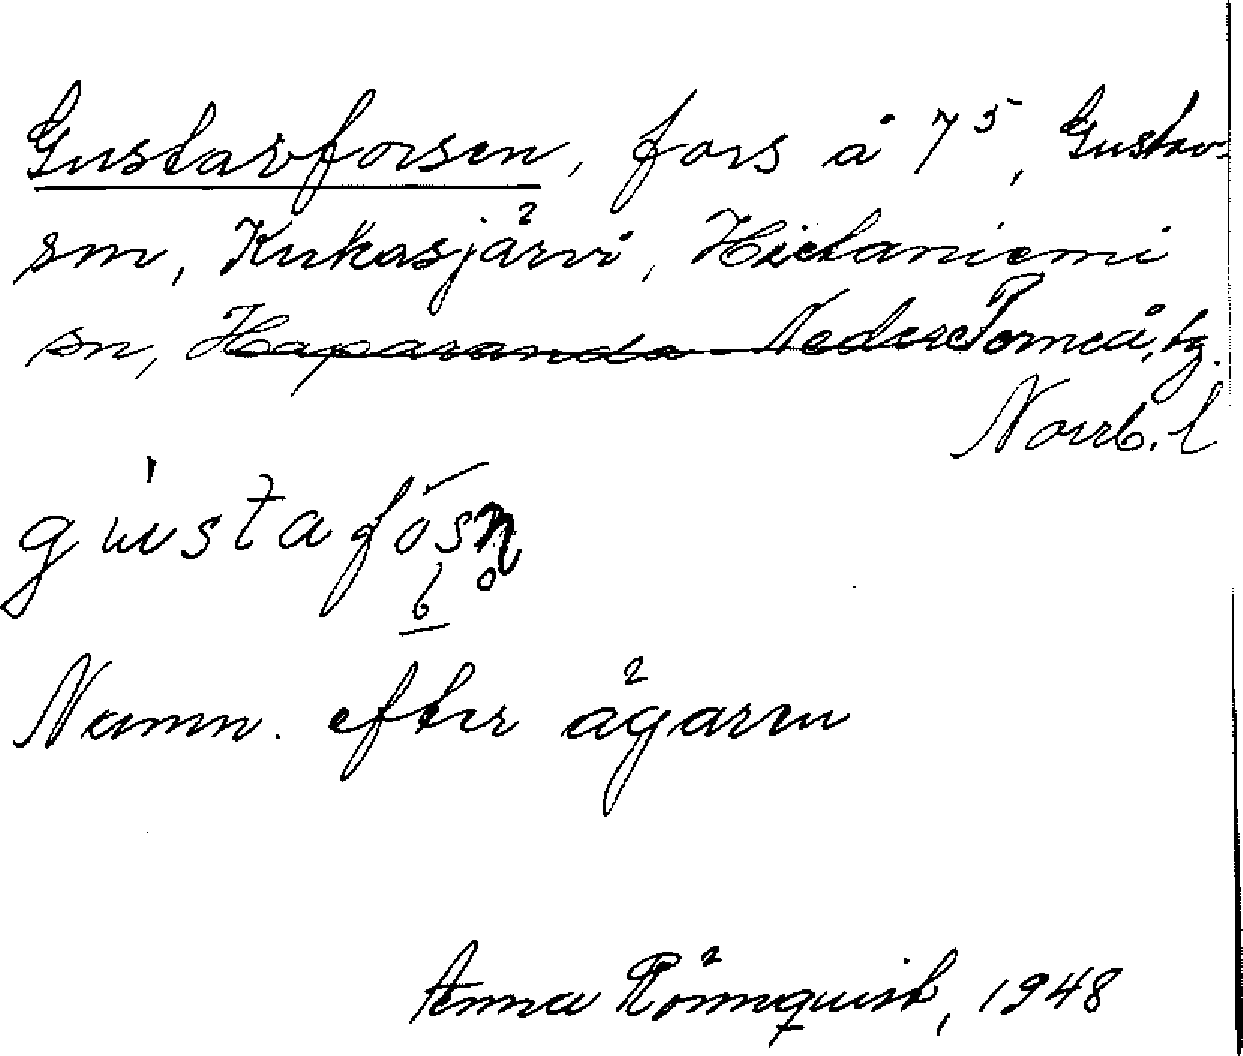 Gustavforsen, fors å 7⁵, Gustav-
sm, Kukasjärvi, Hietaniemi
sn, Haparanda Neder Torneå, tg.
Norrb. l
gustafósn̥
Namn. efter ägaren
Anna Rönnquist, 1948